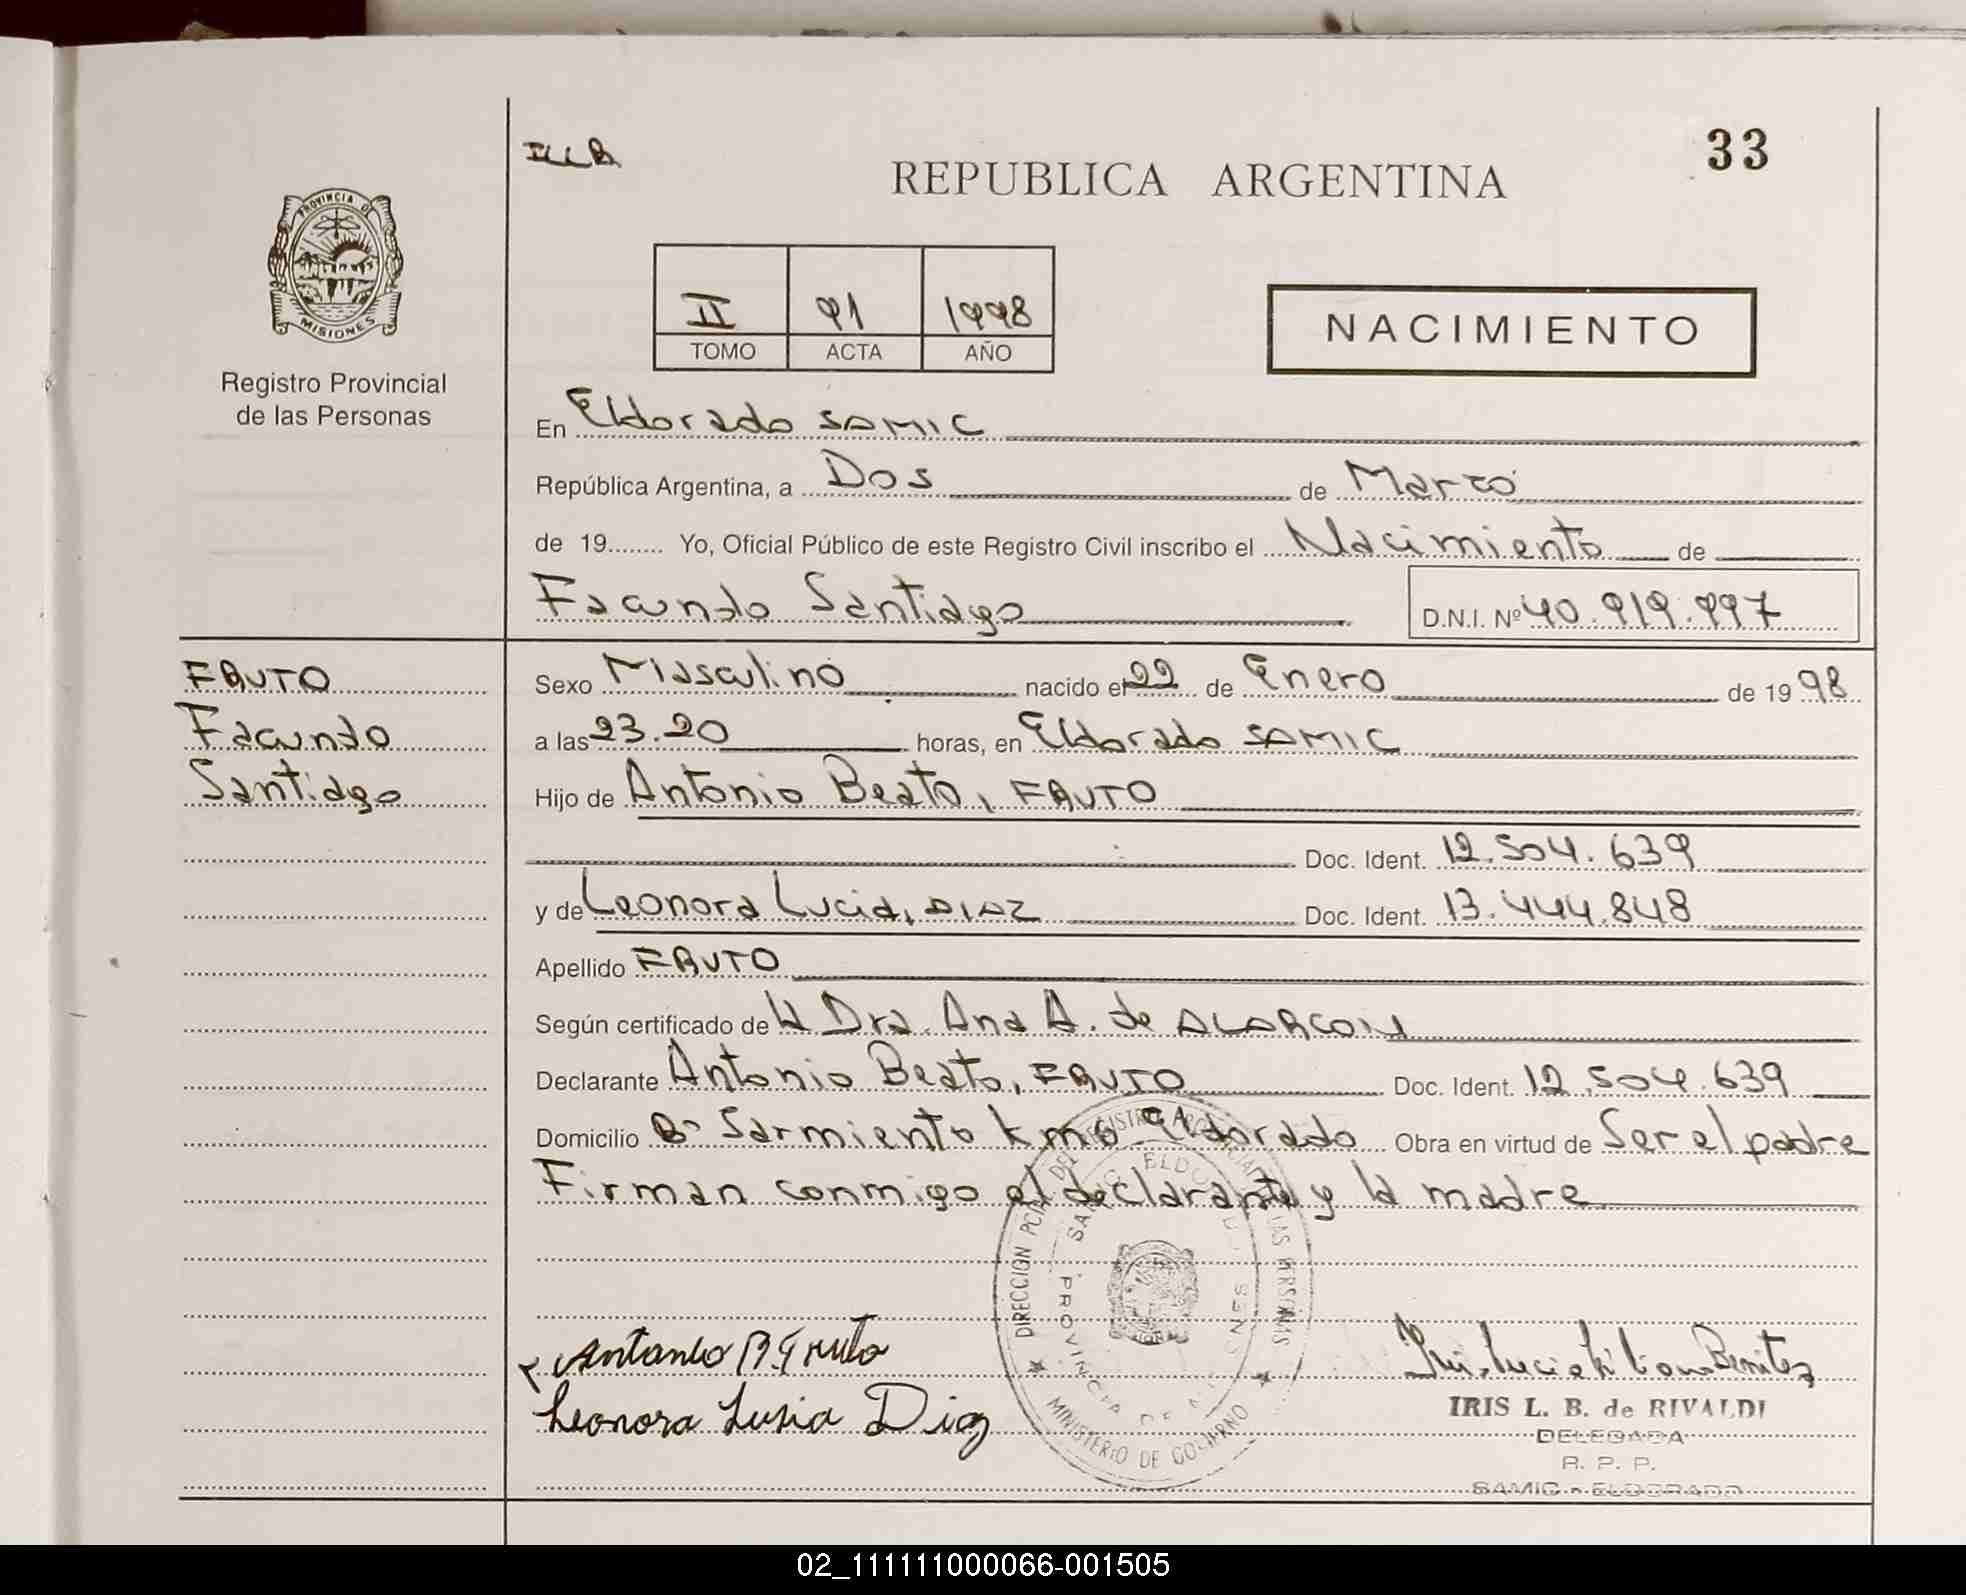 33
REPUBLICA ARGENTINA
PROVINCIA DE
MISIONES
Registro Provincial
de las Personas
II 91 1998
TOMO ACTA AÑO
NACIMIENTO
En Eldorado SAMIC
República Argentina, a Dos de Marzo
de 19........ Yo, Oficial Público de este Registro Civil inscribo el Nacimiento de
Facundo Santiago D.N.I. Nº 40.919.997
FRUTO
Facundo
Santiago
Sexo Masculino nacido el 22 de Enero de 19 98
a las 23.20 horas, en Eldorado SAMIC
Hijo de Antonio Beato, FRUTO
Doc. Ident. 12.504.639
y de Leonora Lucia, DIAZ Doc. Ident. 13.444.848
Apellido FRUTO
Según certificado de la Dra. Ana A. de ALARCON
Declarante Antonio Beato, FRUTO Doc. Ident. 12.504.639
Domicilio Bº Sarmiento km6 Eldorado Obra en virtud de Ser el padre
Firman conmigo el declarante y la madre
Antonio B. Fruto
Leonora Lusia Diaz
IRIS L. B. de RIVALDI
DELEGADA
R. P. P.
SAMIC - ELDORADO
MINISTERIO DE GOBIERNO
02_111111000066-001505